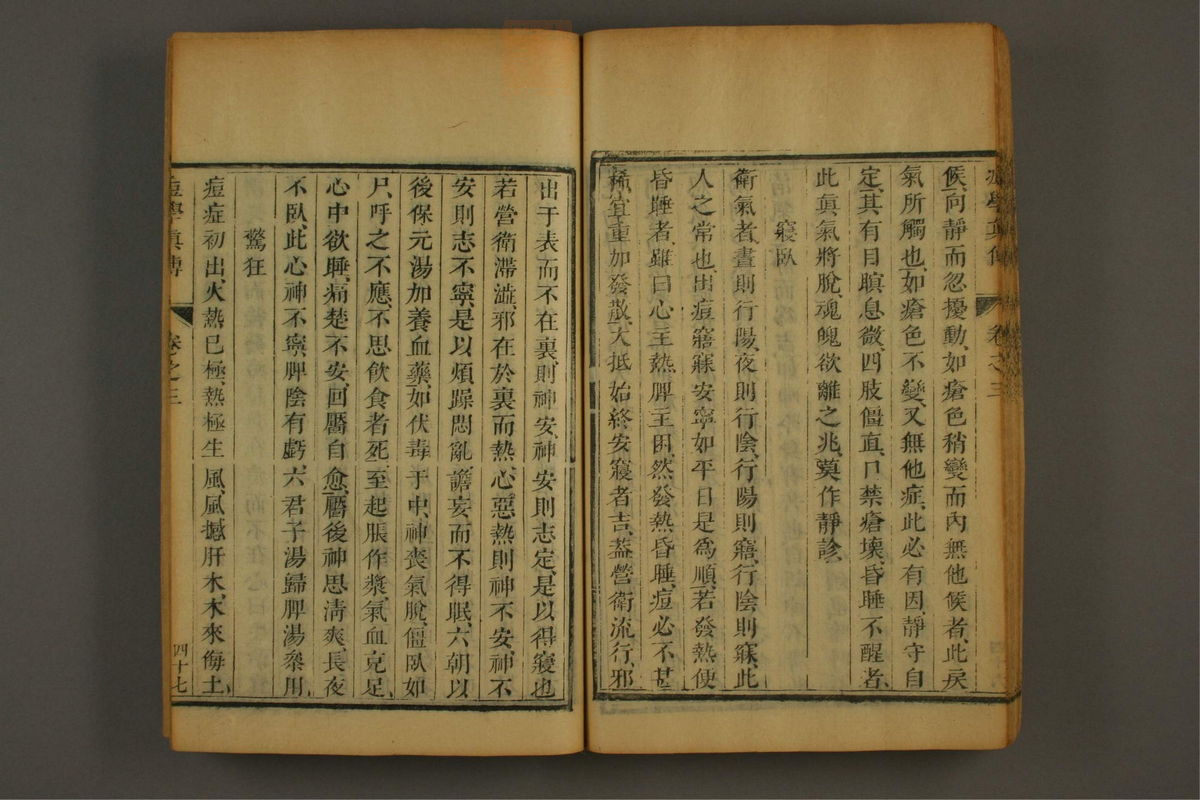 痘學真傳 卷之三
候、向靜而忽擾動、如瘡色稍變而內無他候者、此戾
氣所觸也、如瘡色不變、又無他症、此必有因、靜守自
定、其有目瞑息微、四肢僵直、口禁瘡壞、昏睡不醒者、
此眞氣將脫、魂魄欲離之兆、莫作靜診、
寢臥
衛氣者晝則行陽、夜則行陰、行陽則寤、行陰則寐、此
人之常也、出痘寤寐安寧如平日、是爲順、若發熱便
昏睡者、雖曰心主熱、脾主困、然發熱昏睡、痘必不甚
稀、宜重加發散、大抵始終安寢者吉、蓋營衛流行、邪
出于表而不在裏、則神安、神安則志定、是以得寢也、
若營衛滯澁、邪在於裏而熱、心惡熱則神不安、神不
安則志不寧、是以煩躁悶亂、譫妄而不得眠、六朝以
後保元湯加養血藥、如伏毒于中、神喪氣脫、僵臥如
尸、呼之不應、不思飲食者死、至起脹作漿、氣血克足、
心中欲睡、痛楚不安、回靨自愈、靨後神思淸爽、長夜
不臥、此心神不寧、脾陰有虧、六君子湯歸脾湯叅用、
驚狂
痘症初出、火熱已極、熱極生風、風撼肝木、木來侮土、
痘學眞傳 卷之三 四十七